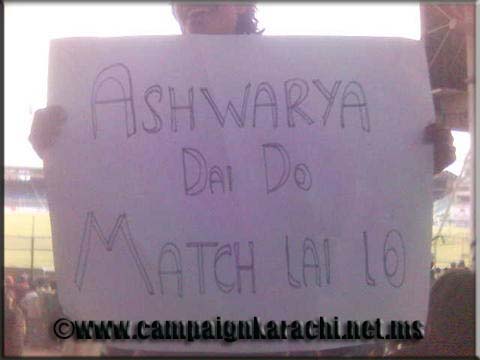 ASHWARYA
DAI DO
MATCH LAI LO
©www.campaignkarachi.net.ms